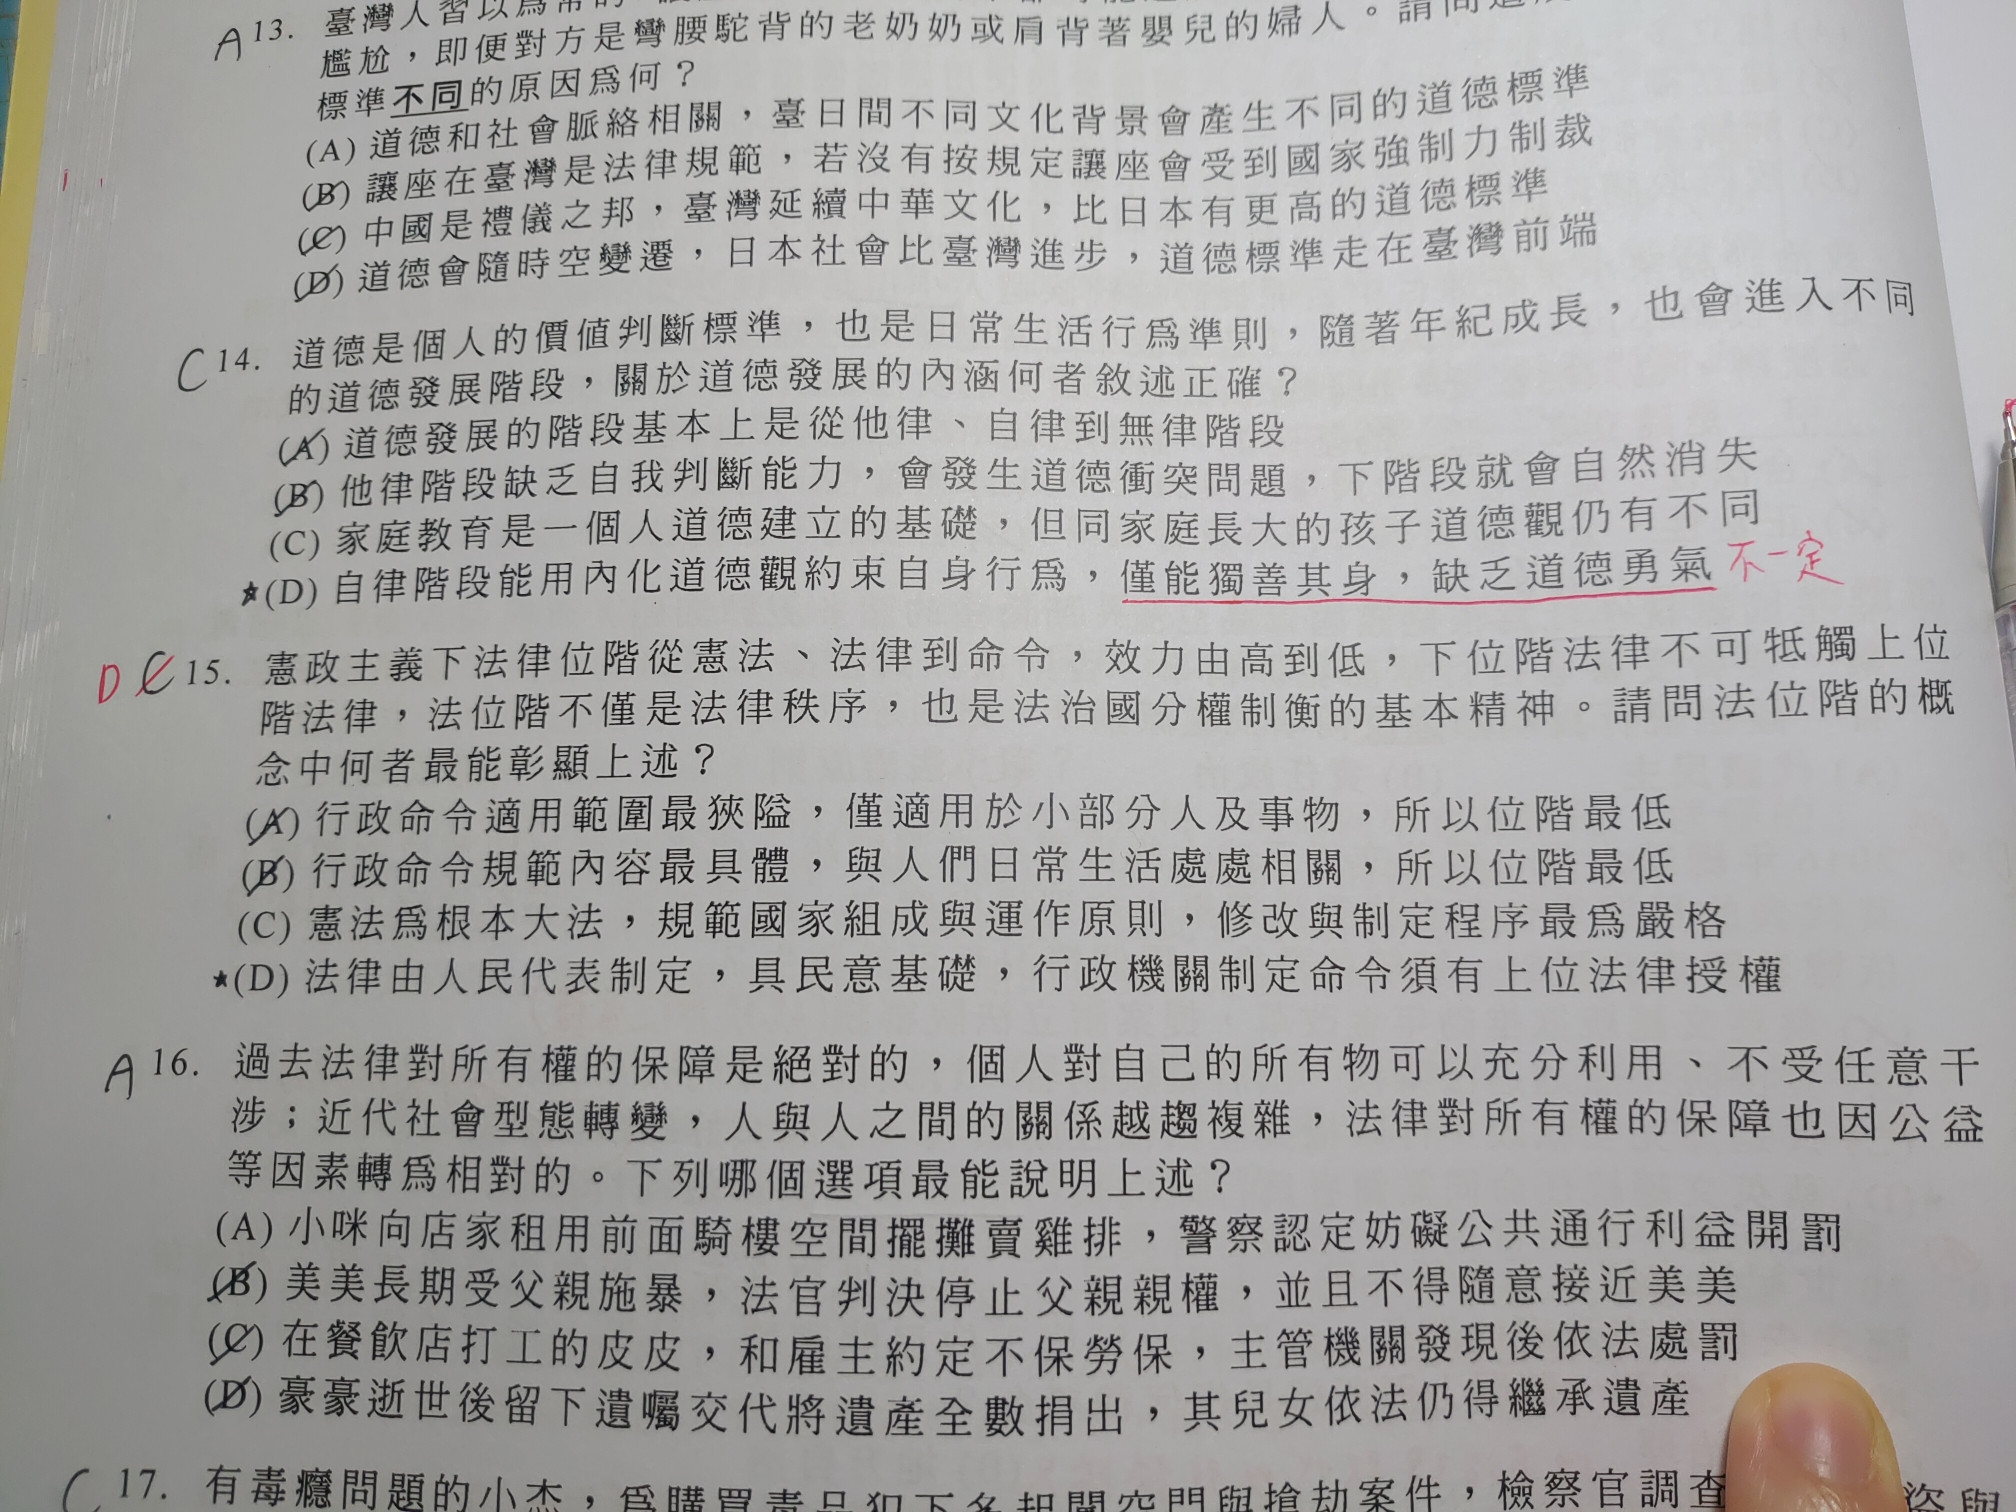 A 13. 臺灣人習以為常的
尷尬，即便對方是彎腰駝背的老奶奶或肩背著嬰兒的婦人。請問
標準不同的原因為何？
(A) 道德和社會脈絡相關，臺日間不同文化背景會產生不同的道德標準
(B) 讓座在臺灣是法律規範，若沒有按規定讓座會受到國家強制力制裁
(C) 中國是禮儀之邦，臺灣延續中華文化，比日本有更高的道德標準
(D) 道德會隨時空變遷，日本社會比臺灣進步，道德標準走在臺灣前端
C 14. 道德是個人的價值判斷標準，也是日常生活行為準則，隨著年紀成長，也會進入不同
的道德發展階段，關於道德發展的內涵何者敘述正確？
(A) 道德發展的階段基本上是從他律、自律到無律階段
(B) 他律階段缺乏自我判斷能力，會發生道德衝突問題，下階段就會自然消失
(C) 家庭教育是一個人道德建立的基礎，但同家庭長大的孩子道德觀仍有不同
★(D) 自律階段能用內化道德觀約束自身行為，僅能獨善其身，缺乏道德勇氣 不一定
D C 15. 憲政主義下法律位階從憲法、法律到命令，效力由高到低，下位階法律不可牴觸上位
階法律，法位階不僅是法律秩序，也是法治國分權制衡的基本精神。請問法位階的概
念中何者最能彰顯上述？
(A) 行政命令適用範圍最狹隘，僅適用於小部分人及事物，所以位階最低
(B) 行政命令規範內容最具體，與人們日常生活處處相關，所以位階最低
(C) 憲法為根本大法，規範國家組成與運作原則，修改與制定程序最為嚴格
★(D) 法律由人民代表制定，具民意基礎，行政機關制定命令須有上位法律授權
A 16. 過去法律對所有權的保障是絕對的，個人對自己的所有物可以充分利用、不受任意干
涉；近代社會型態轉變，人與人之間的關係越趨複雜，法律對所有權的保障也因公益
等因素轉為相對的。下列哪個選項最能說明上述？
(A) 小咪向店家租用前面騎樓空間擺攤賣雞排，警察認定妨礙公共通行利益開罰
(B) 美美長期受父親施暴，法官判決停止父親親權，並且不得隨意接近美美
(C) 在餐飲店打工的皮皮，和雇主約定不保勞保，主管機關發現後依法處罰
(D) 豪豪逝世後留下遺囑交代將遺產全數捐出，其兒女依法仍得繼承遺產
C 17. 有毒癮問題的小杰，為購買毒品犯下多起闖空門與搶劫案件，檢察官調查